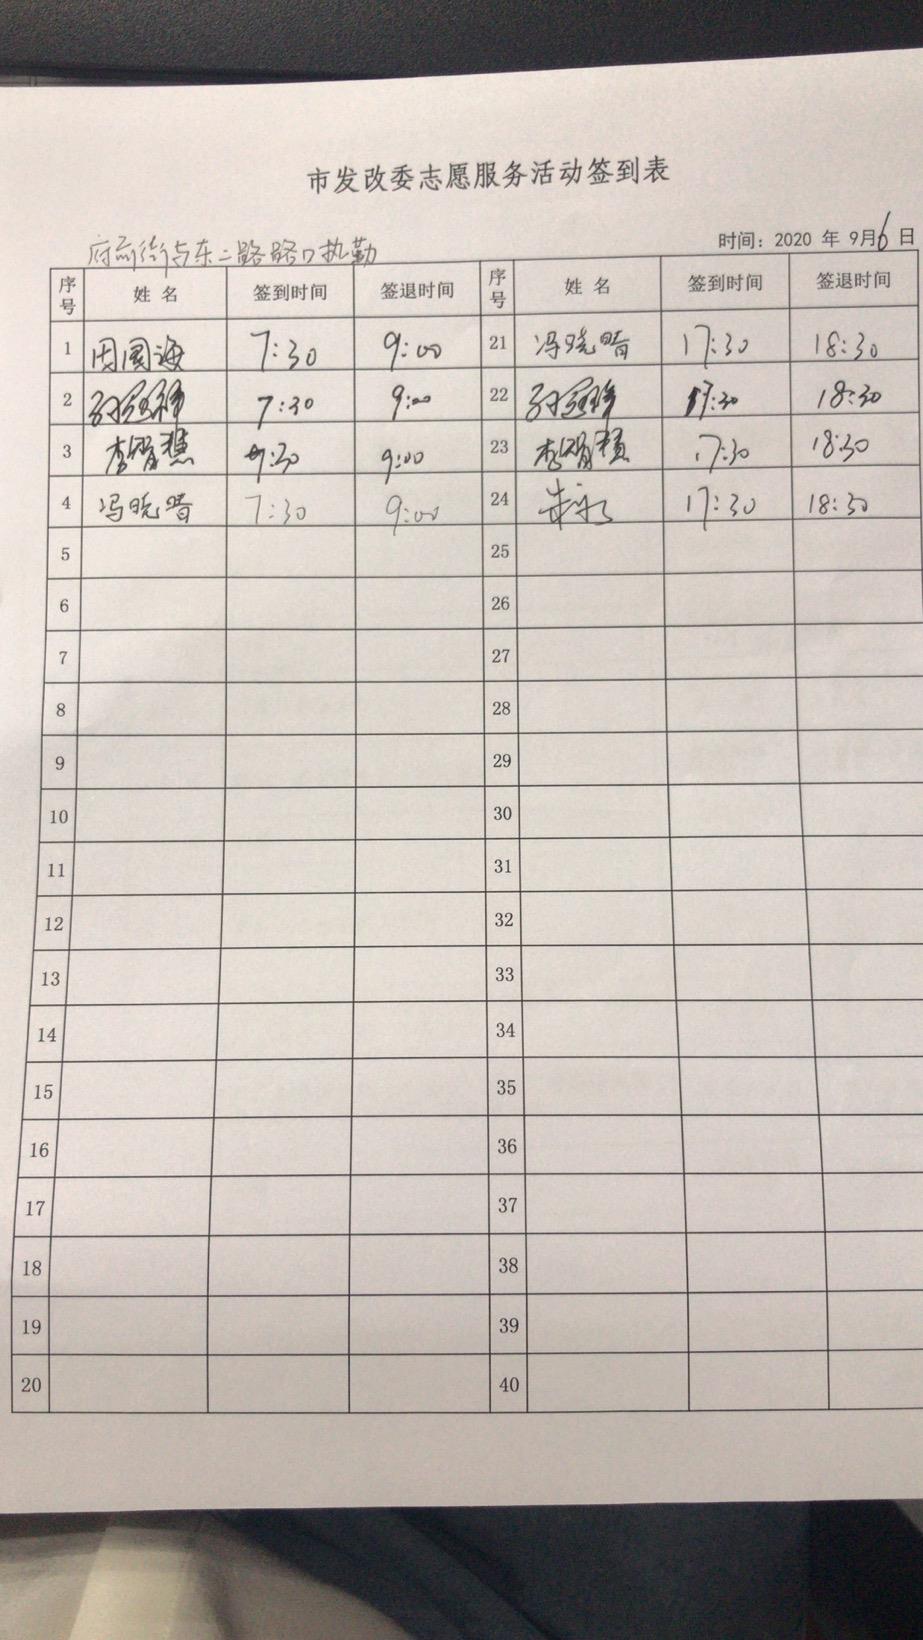 市发改委志愿服务活动签到表
时间：2020 年 9月6日
府前街与东二路路口执勤
序号 姓名 签到时间 签退时间 序号 姓名 签到时间 签退时间
1 周国海 7:30 9:00 21 冯晓晴 17:30 18:30
2 7:30 9:00 22 17:30 18:30
3 李 7:30 9:00 23 李 17:30 18:30
4 冯晓晴 7:30 9:00 24 朱 17:30 18:30
5 25
6 26
7 27
8 28
9 29
10 30
11 31
12 32
13 33
14 34
15 35
16 36
17 37
18 38
19 39
20 40